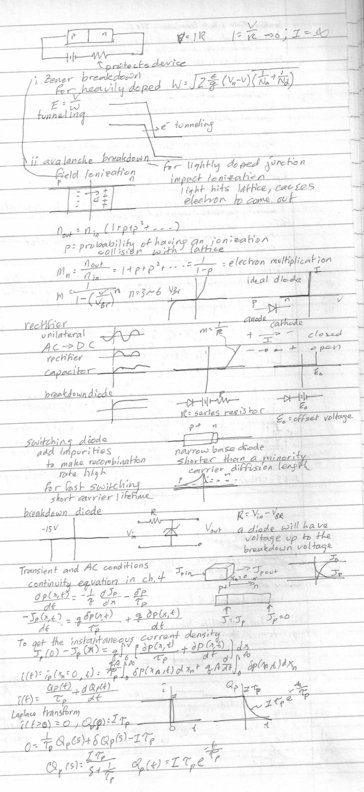 p n V=IR I=V/R→0; I=∞
protects device
i. Zener breakdown
for heavily doped W=√(2 ε/q (V₀-V)(1/Na+1/Nd))
E=V/W
tunneling
e⁻ tunneling
ii avalanche breakdown - for lightly doped junction
field Ionization impact Ionization
p n light hits lattice, causes
electron to come out
nout = nin (1+p+p²+...)
p = probability of having an ionization
collision with lattice
Mn = nout/nin = 1+p+p²+... = 1/(1-p) : electron multiplication
M = 1/(1-(V/VBr)ⁿ) n=3~6 VBr
ideal diode I
V
p n
anode cathode
rectifier
unilateral
AC→DC
rectifier
capacitor
m=1/R
+ I - closed
- + open
E₀
breakdown diode
R = series resistor
E₀
E₀ = offset voltage
switching diode
add impurities
to make recombination
rate high
for fast switching
short carrier lifetime
p+ n
narrow base diode
shorter than a minority
carrier diffusion length
breakdown diode
-15V
R
Vin Vout
R = Vin-VBR
a diode will have
voltage up to the
breakdown voltage
Transient and AC conditions
continuity equation in ch.4
Jpin Jpout
p+ n
J=Jp Jp=0
δp(x,t)/dt = -1/q δJp/dx - δp/τp
-Jp(x,t)/dx = q δp(x,t)/τp + q δp(x,t)/dt
To get the instantaneous current density
Jp(0) - Jp(x) = q∫[δp(x,t)/τp + δp(x,t)/dt]dx
i(t) = Qp(t)/τp + dQp(t)/dt
Laplace transform
i(t>0)=0, Qp(0)=Iτp
0 = 1/τp Qp(s) + sQp(s) - Iτp
Qp(s) = Iτp/(s+1/τp) Qp(t) = Iτp e^(-t/τp)
i t
Qp Iτp
Iτp e^(-t/τp)
t